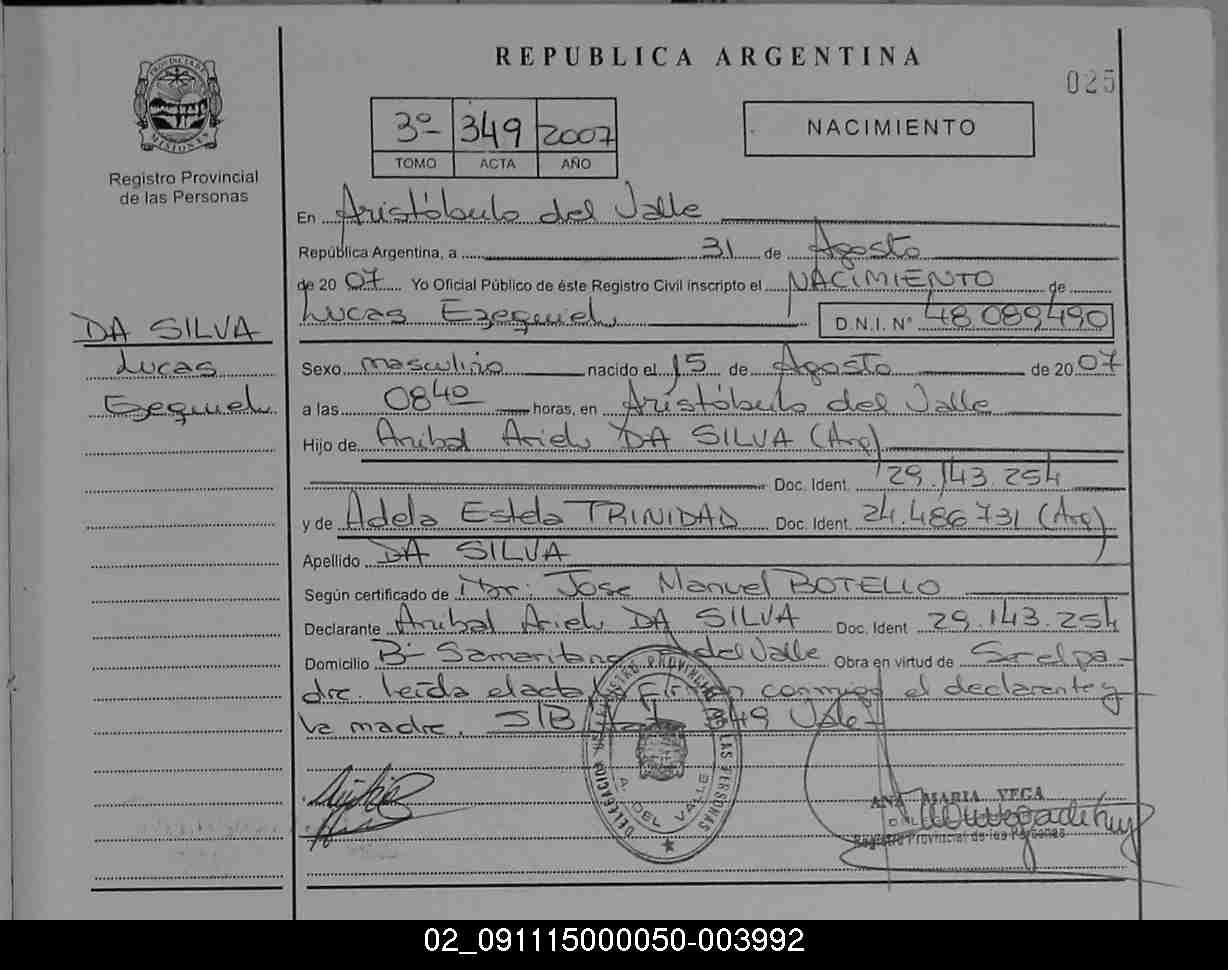 REPUBLICA ARGENTINA
025
PROVINCIA DE
MISIONES
Registro Provincial
de las Personas
3º 349 2007
TOMO ACTA AÑO
NACIMIENTO
En Aristóbulo del Valle
República Argentina, a 31 de Agosto
de 2007 Yo Oficial Público de éste Registro Civil inscripto el NACIMIENTO de
Lucas Ezequiel D.N.I. Nº 48.089.490
DA SILVA
Lucas
Ezequiel
Sexo masculino nacido el 15 de Agosto de 2007
a las 0840 horas, en Aristóbulo del Valle
Hijo de Anibal Ariel DA SILVA (Arg)
Doc. Ident. 29.143.254
y de Adela Estela TRINIDAD Doc. Ident. 24.486731 (Arg)
Apellido DA SILVA
Según certificado de Dr: Jose Manuel BOTELLO
Declarante Anibal Ariel DA SILVA Doc. Ident 29.143.254
Domicilio Bº Samaritano del Valle Obra en virtud de Ser el pa-
dre. Leída el acta Firman conmigo el declarante y
la madre. S/B 349 Vale
DELEGACION REGISTRO PROVINCIAL DE LAS PERSONAS
A. DEL VALLE
ANA MARIA VEGA
Registro Provincial de las Personas
02_091115000050-003992